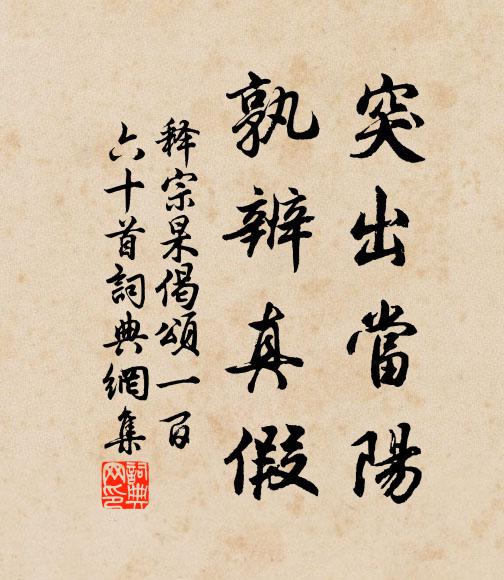 突出當陽
孰辨真假
释宗杲偈頌一百
六十首詞典網集
詞典
网印